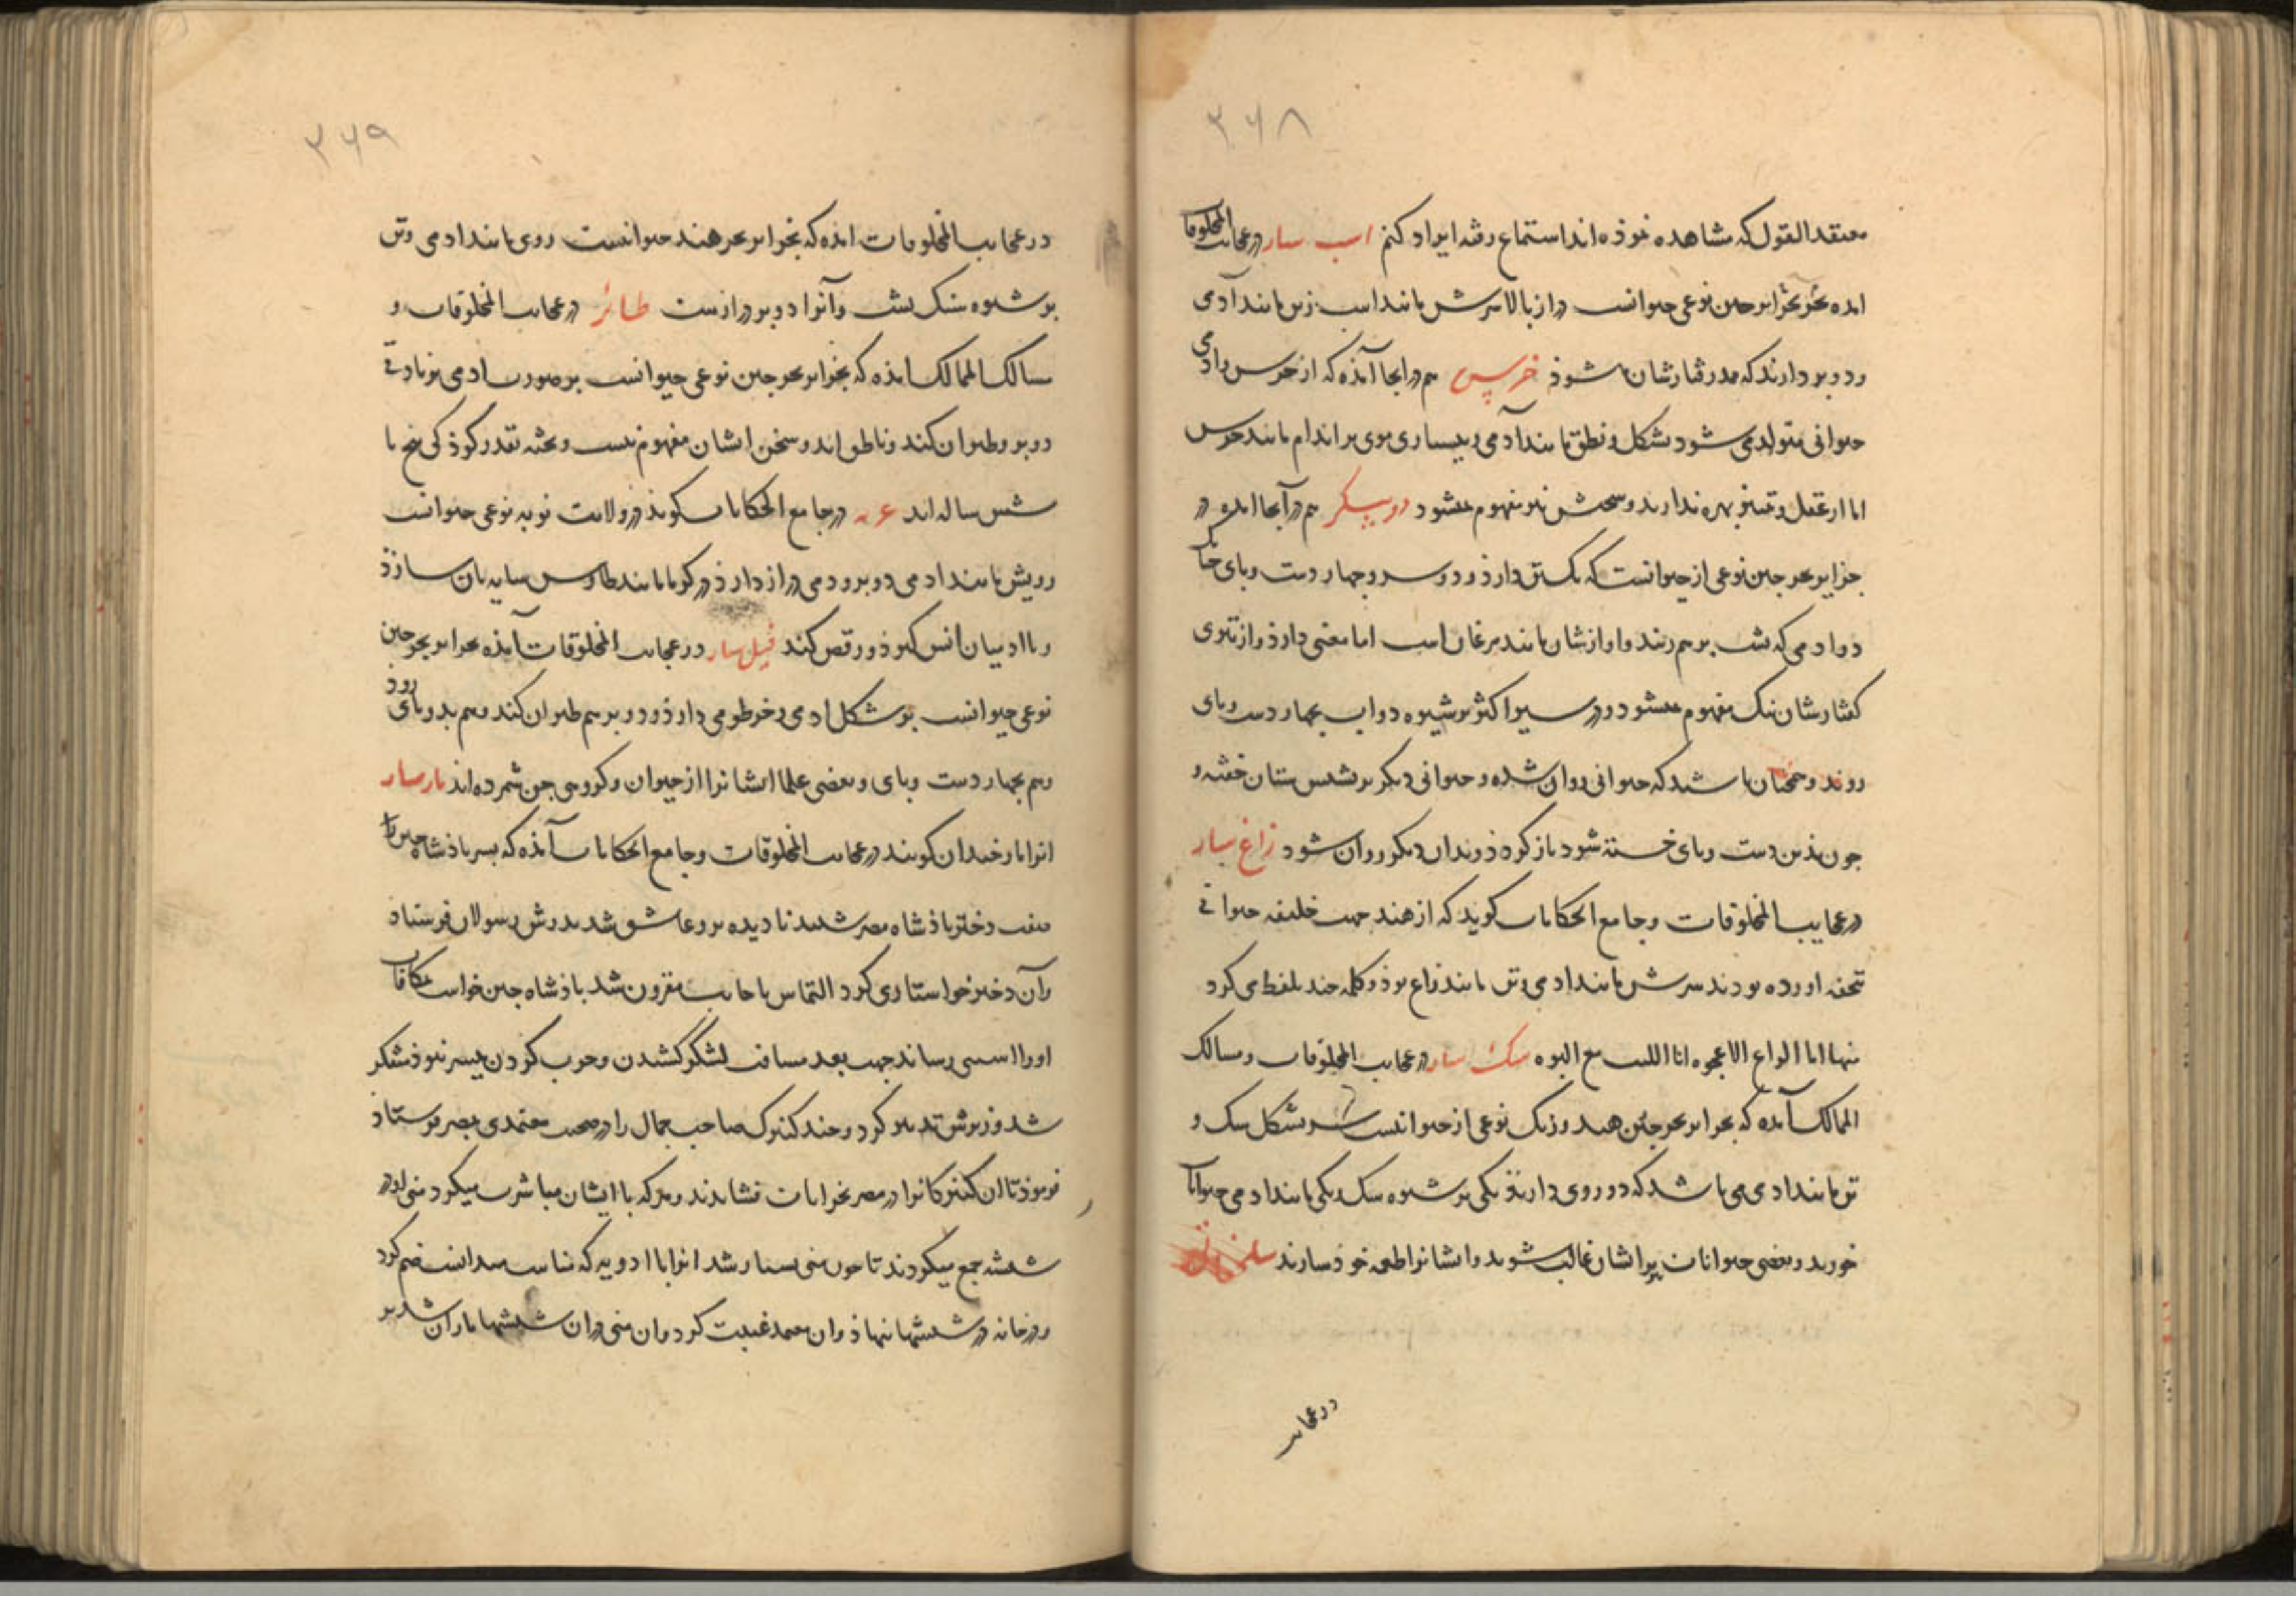 ۲۶۸
معتقد القول که مشاهده نموذه‌اند استماع رفته ایراد کنم اسب سار در عجایب المخلوقات
امده که بجزایر چین نوعی حیوانست دراز بالا سرش مانند اسب و تن مانند آدمی
و دو پر دارند که مدد رفتارشان شوذ خرس هم در انجا آمذه که از خرس و ادمی
حیوانی متولد می شود بشکل و نطق مانند آدمی و بسیاری موی بر اندام مانند خرس
اما از عقل و تمییز بهره ندارند و سخنش نیز مفهوم نمیشود دو پیکر هم در آنجا امده در
جزایر بحر چین نوعی از حیوانست که یک تن دارذ و دو سر و چهار دست و پای چنانک
دو ادمی که پشت بر هم زنند و اوازشان مانند مرغان است اما معنی دارذ و از تیزی
گفتارشان نیک مفهوم نمیشود و در سیر اکثر بر شیوه دواب بچهار دست و پای
روند و همچنان باشد که حیوانی روان شده و حیوانی دیگر بر پشتش ستان خفته و
چون بذین دست و پای خسته شود باز گردد و بدان دیگر روان شود زاغ سار
در عجایب المخلوقات و جامع الحکایات گوید که از هند جهت خلیفه حیوانی
تحفه اورده بودند سرش مانند ادمی و تن مانند زاغ بوذ و کلمه چند تلفظ می کرد
منها انا الزاغ الاعجوه انا اللیث مع اللبوه سک سار در عجایب المخلوقات و مسالک
الممالک آمده که بجزایر بحر چین و هند و زنک نوعی از حیوانست سر بشکل سک و
تن مانند ادمی می باشد که دو روی دارند یکی بر شیوه سک یکی مانند ادمی حیوانات
خورند و بعضی حیوانات بر ایشان غالب شوند و ایشانرا طعمه خوذ سازند
در عجایب
۲۶۹
در عجایب المخلوقات امده که بجزایر بحر هند حیوانیست روی مانند ادمی و تن
بر شیوه سنک پشت و آنرا دو پر درازست طائر در عجایب المخلوقات و
مسالک الممالک امذه که بجزایر بحر چین نوعی حیوانست بر صورت ادمی بزیادتی
دو پر و طیران کند و ناطق‌اند و سخن ایشان مفهوم نیست و بجثه بقدر کوذکی پنج یا
شش ساله‌اند در جامع الحکایات گوید در ولایت نوبه نوعی حیوانست
رویش مانند ادمی دو پر و دمی دراز دارذ در گرما مانند طاوس سایه بان سازذ
و با ادمیان انس گیرذ و رقص کند فیل سار در عجایب المخلوقات آمذه بجزایر بحر چین
نوعی حیوانست بر شکل ادمی و خرطومی دارذ و دو پر هم طیران کند و هم بدو پای رود
و هم بچهار دست و پای و بعضی علما ایشانرا از حیوان و گروهی جن شمرده‌اند مار سار
انرا مار خندان گویند در عجایب المخلوقات و جامع الحکایات آمذه که پسر پاذشاه چین را
صفت دختر پاذشاه مصر شنید نادیده برو عاشق شد پدرش رسولان فرستاد
و آن دختر خواستاری کرد التماس باجابت مقرون نشد پاذشاه چین خواست مکافات
اورا اسیبی رساند جهت بعد مسافت لشکر کشیدن و حرب کردن میسر نبوذ متفکر
شد وزیرش تدبیر کرد و چند کنیزک صاحب جمال را در صحبت معتمدی بمصر فرستاد
فرموذ تا ان کنیزکانرا در مصر بخرابات نشاندند و هر که با ایشان مباشرت میکرد منی او در
شیشه جمع میکردند تا چون منی بسیار شد انرا با ادویه که مناسب میدانست ضم کرد
و در خانه در شیشها نهاذ و ان معتمد غیبت کرد و ان منی در ان شیشها ماران شد بر